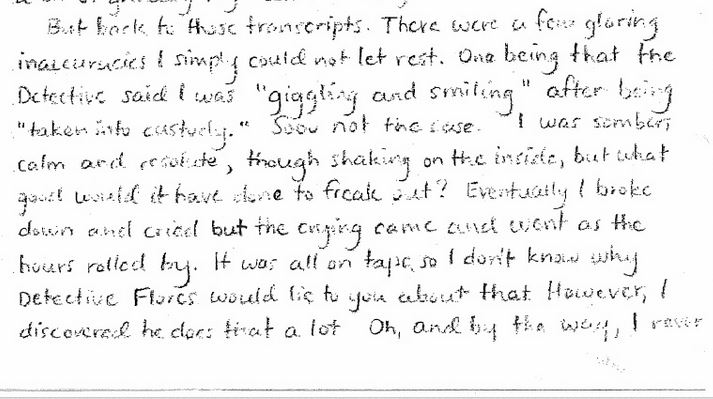 But back to those transcripts. There were a few glaring
inaccuracies I simply could not let rest. One being that the
Detective said I was "giggling and smiling" after being
"taken into custody." Sooo not the case. I was somber,
calm and resolute, though shaking on the inside, but what
good would it have done to freak out? Eventually I broke
down and cried but the crying came and went as the
hours rolled by. It was all on tape, so I don't know why
Detective Flores would lie to you about that. However, I
discovered he does that a lot Oh, and by the way, I never